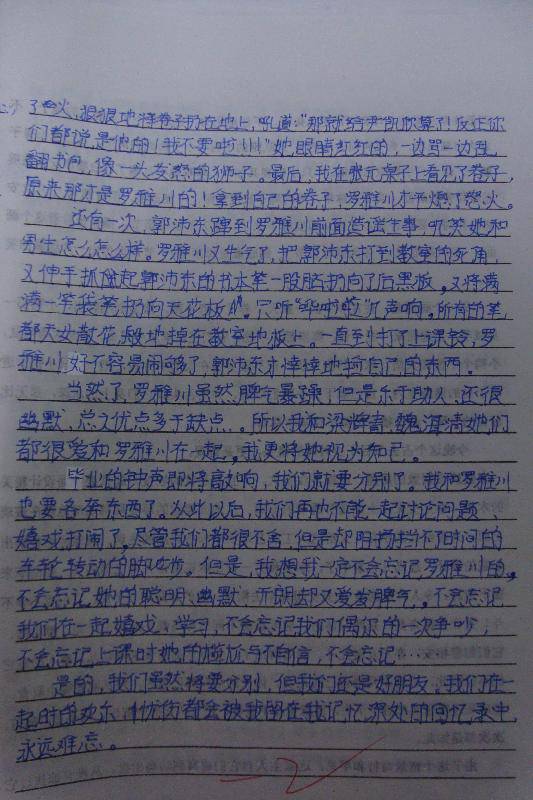 了怒火，狠狠地将卷子扔在地上，吼道："那就给尹凯欣算了！反正你
们都说是他的！我不要啦！！！"她眼睛红红的，一边骂一边乱
翻书包，像一头发怒的狮子。最后，我在张元桌子上看见了卷子，
原来那才是罗雅川的！拿到自己的卷子，罗雅川才平熄了怒火。
还有一次，郭沛东蹿到罗雅川前面造谣生事，叽笑她和
男生怎么怎么样。罗雅川又生气了，把郭沛东打到教室的死角，
又伸手抓起郭沛东的书本笔一股脑扔向了后黑板，又将满
满一笔袋笔扔向天花板，只听"哗啦啦"几声响。所有的笔
都天女散花般地掉在教室地板上。一直到打了上课铃，罗
雅川好不容易闹够了，郭沛东才悻悻地捡自己的东西。
当然了，罗雅川虽然脾气暴躁，但是乐于助人，还很
幽默，总之优点多于缺点。所以我和梁辉、魏海清她们
都很爱和罗雅川在一起，我更将她视为知己。
毕业的钟声即将敲响，我们就要分别了。我和罗雅川
也要各奔东西了。从此以后，我们再也不能一起讨论问题、
嬉戏打闹了，尽管我们都很不舍，但是却阻挡不了时间的
车轮转动的脚步。但是，我想我一定不会忘记罗雅川的，
不会忘记她的聪明、幽默、开朗却又爱发脾气。不会忘记
我们在一起嬉戏、学习，不会忘记我们偶尔的一次争吵，
不会忘记上课时她的尴尬与不自信，不会忘记…
是的，我们虽然将要分别，但我们还是好朋友。我们在一
起时的欢乐、忧伤都会被我留在我记忆深处的回忆录中，
永远难忘。